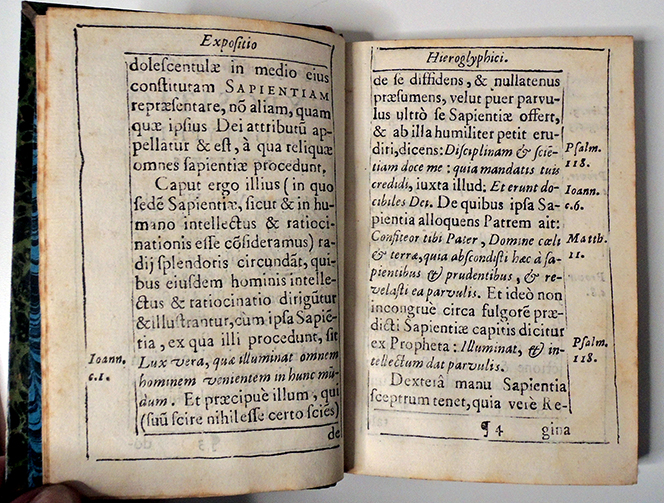 Expositio
dolescentulæ in medio eius
constitutam SAPIENTIAM
repræsentare, nō aliam, quam
quæ ipsius Dei attributũ ap-
pellatur & est, à qua reliquæ
omnes sapientiæ procedunt.
Caput ergo illius (in quo
sedē Sapientiæ, sicut & in hu-
mano intellectus & ratioci-
nationis esse cōsideramus) ra-
dij splendoris circundāt, qui-
bus eiusdem hominis intelle-
ctus & ratiocinatio dirigũtur
& illustrantur, cum ipsa Sapiē-
tia, ex qua illi procedunt, sit
Ioann. c.1. Lux vera, quæ illuminat omnem
hominem venientem in hunc mũ-
dum. Et præcipuè illum, qui
(suũ scire nihil esse certo sciēs)
de
Hieroglyphici.
de se diffidens, & nullatenus
præsumens, velut puer parvu-
lus ultrò se Sapientiæ offert,
& ab illa humiliter petit eru-
diri, dicens: Disciplinam & sciē-
tiam doce me: quia mandatis tuis
credidi, iuxta illud: Et erunt do-
cibiles Dei. De quibus ipsa Sa-
pientia alloquens Patrem ait:
Confiteor tibi Pater, Domine cœli
& terræ, quia abscondisti hæc à sa-
pientibus & prudentibus, & re-
velasti ea parvulis. Et ideò non
incongruè circa fulgorē præ-
dicti Sapientiæ capitis dicitur
ex Propheta: Illuminat, & in-
tellectum dat parvulis.
Dexterâ manu Sapientia
sceptrum tenet, quia verè Re-
¶ 4 gina
Psalm.
118.
Ioann.
c.6.
Matth.
11.
Psalm.
118.